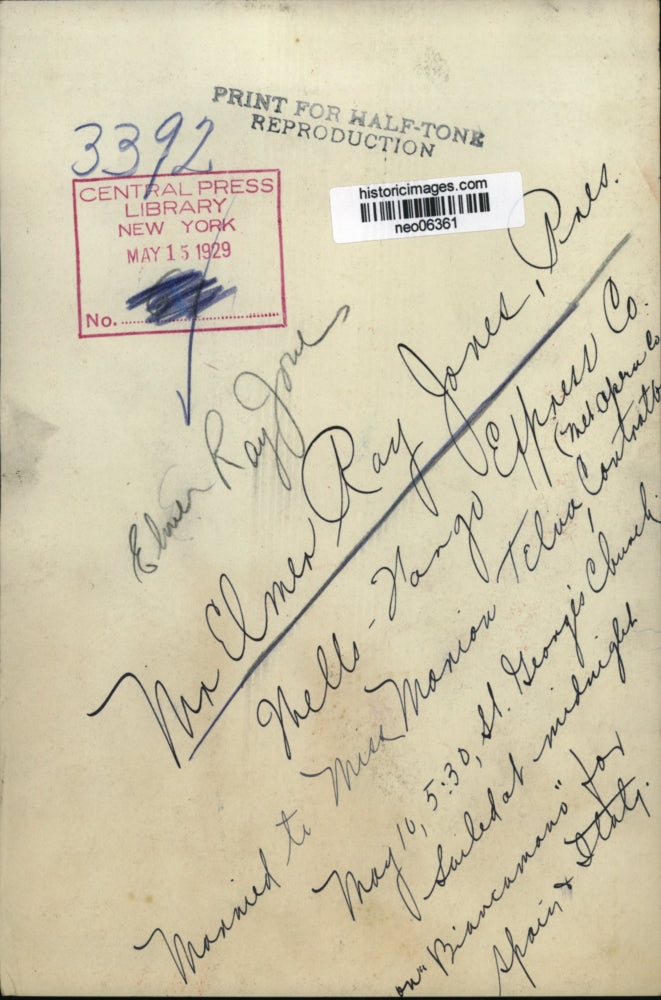 PRINT FOR HALF-TONE
REPRODUCTION
3392
CENTRAL PRESS
LIBRARY
NEW YORK
MAY 15 1929
No.
historicimages.com
neo06361
Elmer Ray Jones
Mr Elmer Ray Jones, Pres.
Wells-Fargo Express Co.
(Met Opera Co
Married to Miss Marion Telva, Contralto
May 10, 5:30, St. George's Church.
Sailed at midnight
on "Biancamano" for
Spain & Italy.